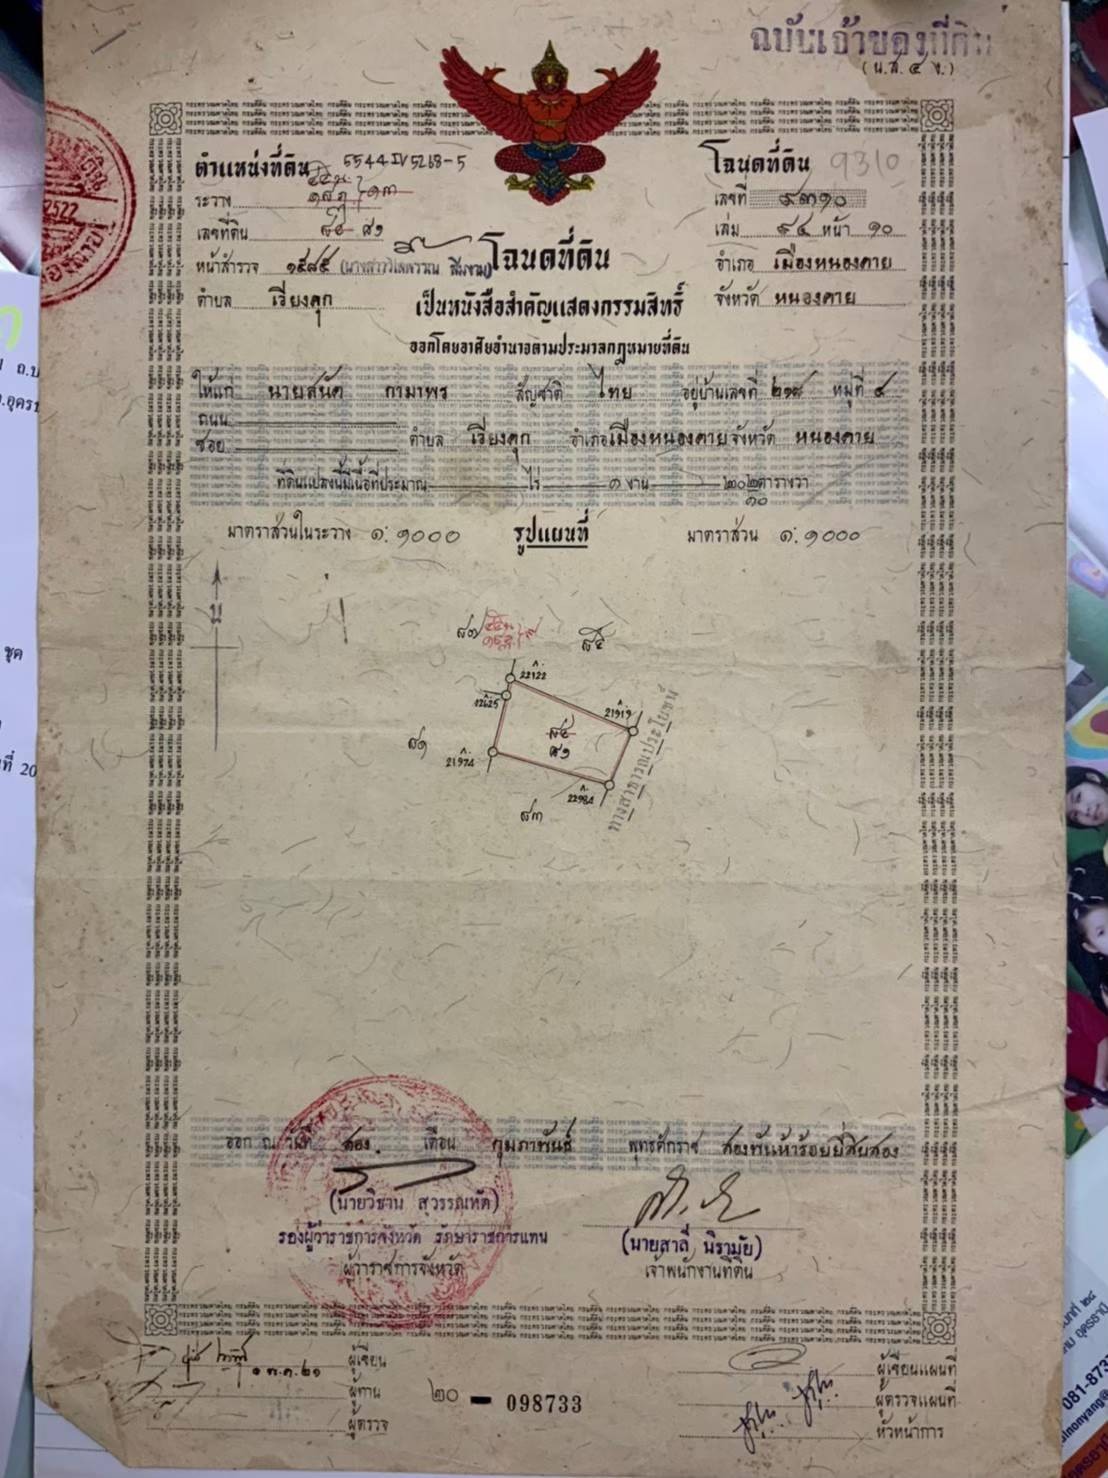 ฉบับเจ้าของที่ดิน
(น.ส. ๔ ง.)
ตำแหน่งที่ดิน 5544 IV 5268-5
ระวาง
เลขที่ดิน ๙๑
หน้าสำรวจ ๑๕๘๕
ตำบล เวียงคุก
โฉนดที่ดิน 9310
เลขที่ ๙๓๑๐
เล่ม ๙๔ หน้า ๑๐
อำเภอ เมืองหนองคาย
จังหวัด หนองคาย
โฉนดที่ดิน
เป็นหนังสือสำคัญแสดงกรรมสิทธิ์
ออกโดยอาศัยอำนาจตามประมวลกฎหมายที่ดิน
ให้แก่ นายสนัด กามาพร สัญชาติ ไทย อยู่บ้านเลขที่ ๒๑๘ หมู่ที่ ๔
ถนน
ซอย ตำบล เวียงคุก อำเภอ เมืองหนองคาย จังหวัด หนองคาย
ที่ดินแปลงนี้มีเนื้อที่ประมาณ ไร่ ๑ งาน ตารางวา
มาตราส่วนในระวาง ๑:๑๐๐๐ รูปแผนที่ มาตราส่วน ๑:๑๐๐๐
น
๘๗
๘๕
22122
21919
๙๑
21974
22984
๘๓
ทางสาธารณประโยชน์
ออก ณ วันที่ สอง เดือน กุมภาพันธ์ พุทธศักราช สองพันห้าร้อยยี่สิบสอง
(นายวิธาน สุวรรณทัต)
รองผู้ว่าราชการจังหวัด รักษาราชการแทน
ผู้ว่าราชการจังหวัด
(นายสาลี นิรามัย)
เจ้าพนักงานที่ดิน
ผู้เขียน
ผู้ทาน
ผู้ตรวจ
๒๐ - 098733
ผู้เขียนแผนที่
ผู้ตรวจแผนที่
หัวหน้าการ
081-873